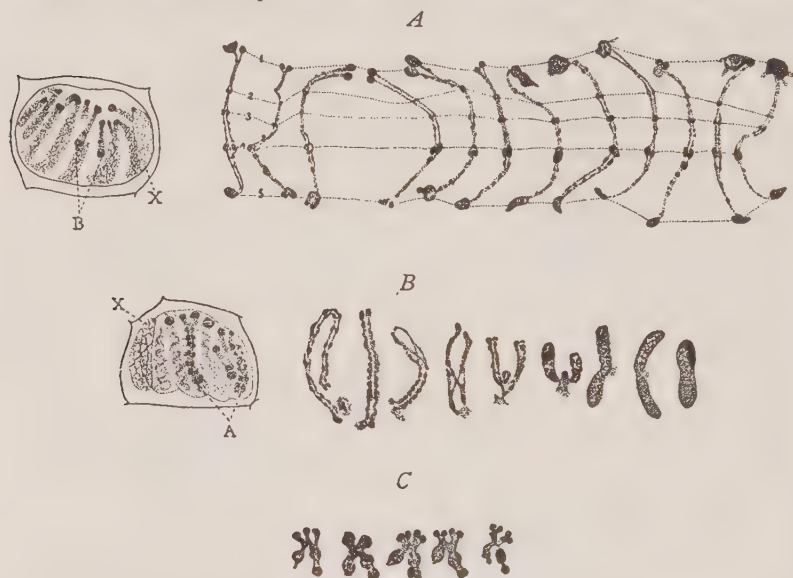 A
1
2
3
4
5
B
X
B
X
A
C